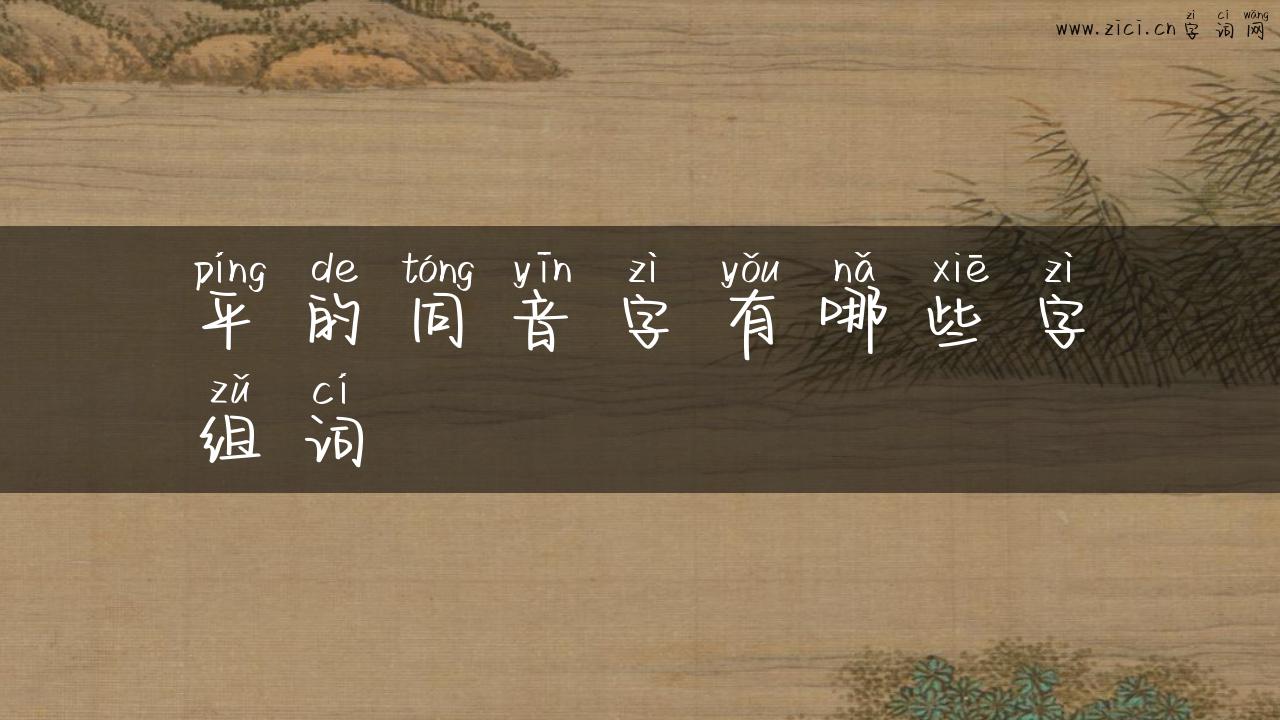 www.zici.cn zì cí wǎng
字词网
píng de tóng yīn zì yǒu nǎ xiē zì
平的同音字有哪些字
zǔ cí
组词